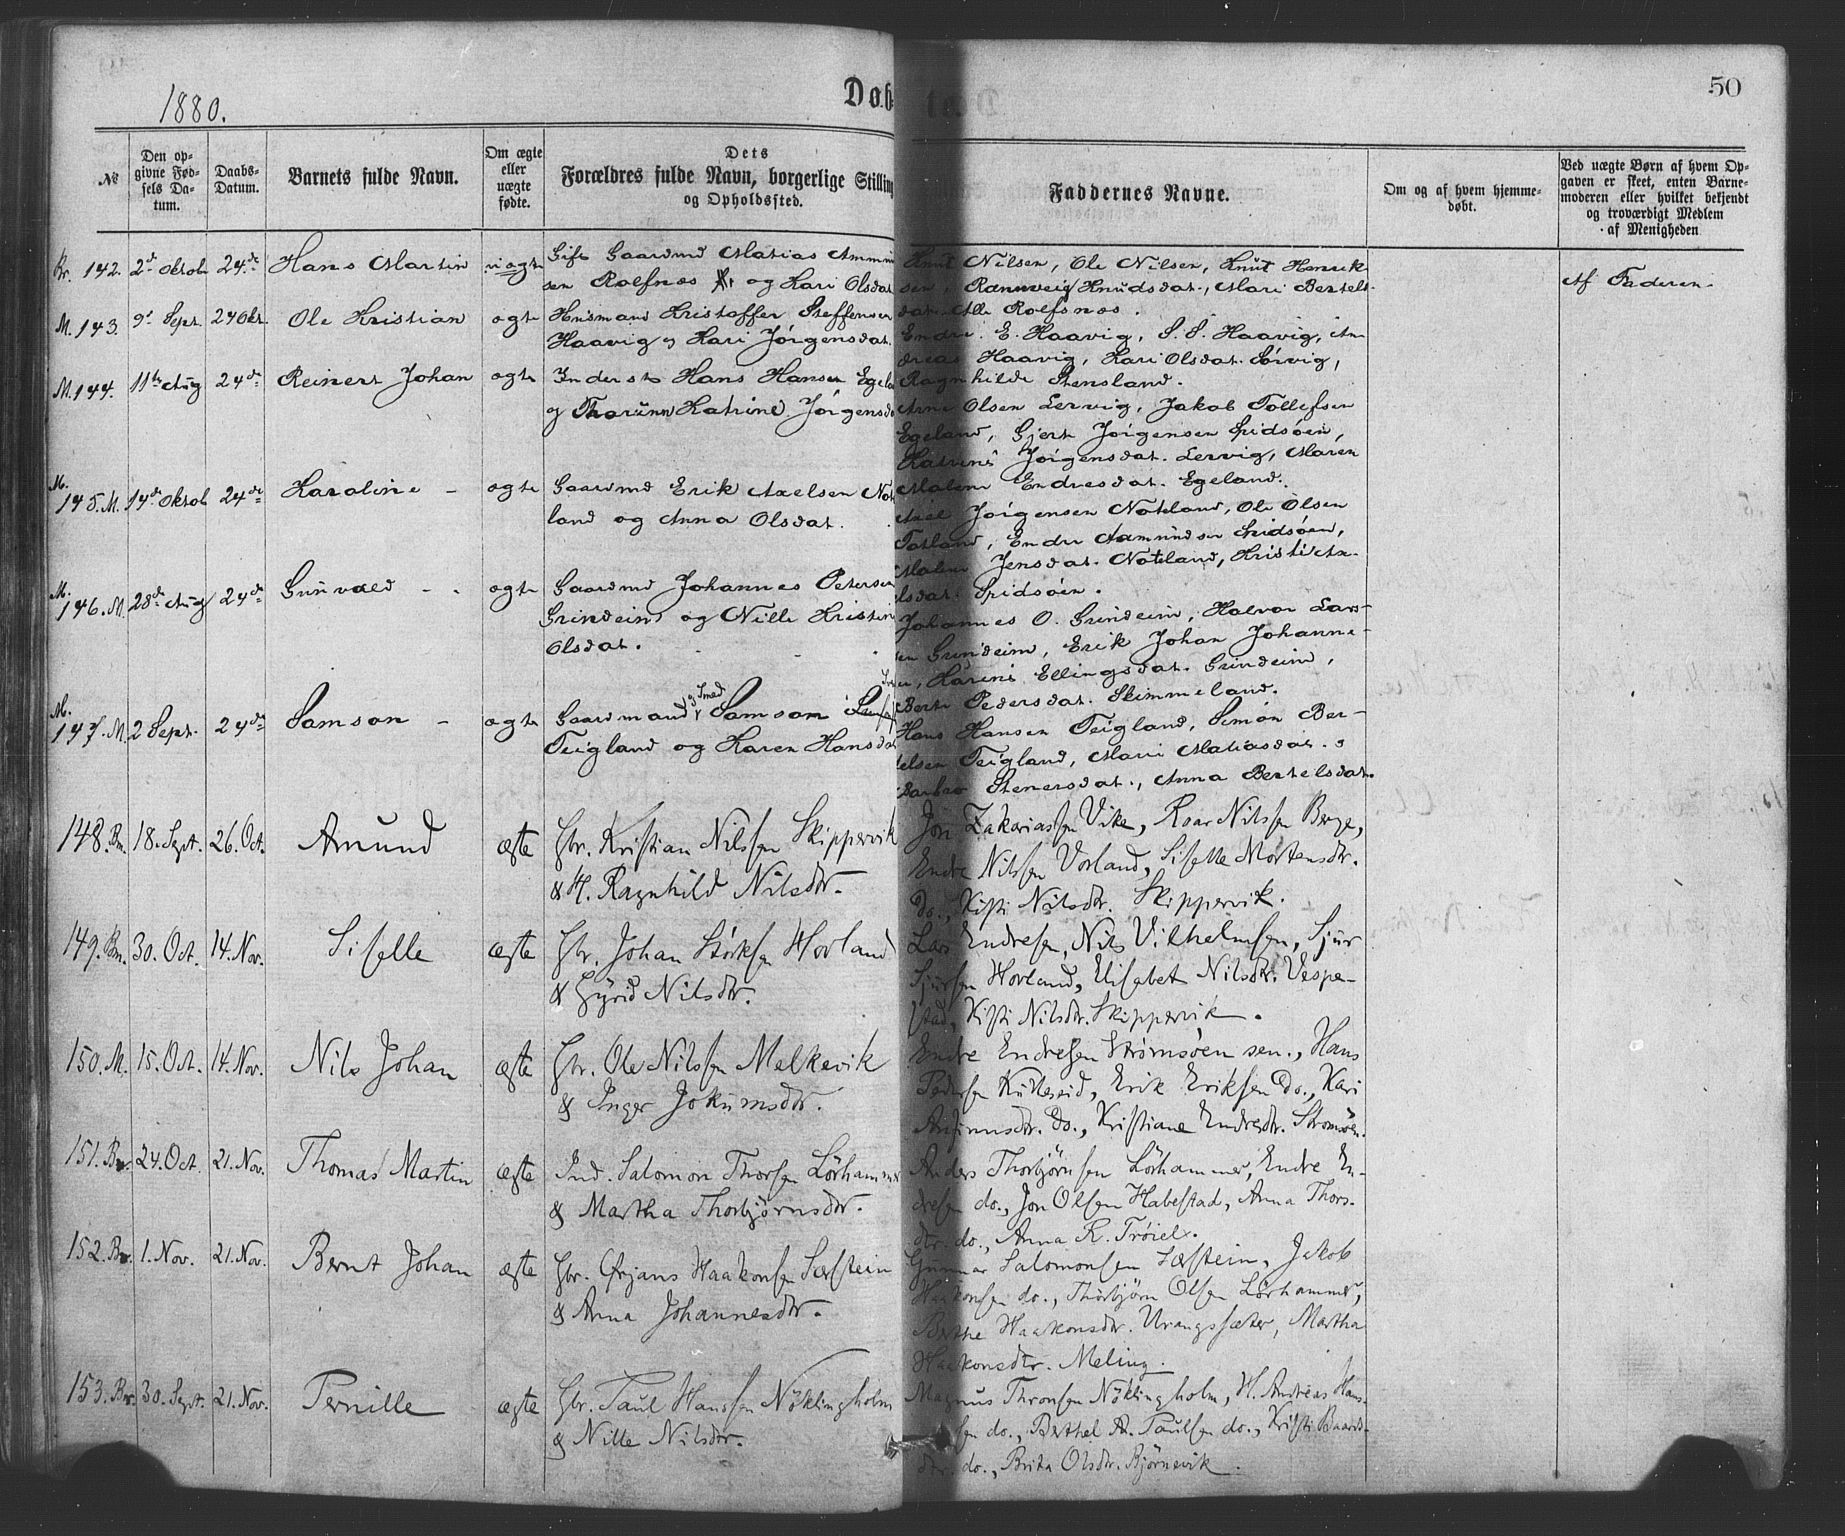 1880.
Døb
50
№
Den opgivne Fødsels Datum.
Daabs-Datum.
Barnets fulde Navn.
Om ægte eller uægte fødte.
Dets Forældres fulde Navn, borgerlige Stilling og Opholdssted.
Faddernes Navne.
Om og af hvem hjemmedøbt.
Ved uægte Børn af hvem Opgaven er skeet, enten Barnemoderen eller hvilket bekjendt og troværdigt Medlem af Menigheden
Br. 142. 2d Oktob 24de Hans Martin uægte Gift Gaardmd Matias Ammun
sen Rolfsnes og Kari Olsdat
Knut Nilsen, Ole Nilsen, Knut Henrik-
sen, Rannveig Knudsdat., Mari Bertels-
dat. Alle Rolfsnes.
Af Faderen.
M. 143. 9d Sept. 24 Okt. Ole Kristian ægte Husmand Kristoffer Steffensen
Haavig og Kari Jørgensdat.
Endre E. Haavig, S. S. Haavig, An-
dreas Haavig, Kari Olsdat. Sørvig,
Ragnhilde Stensland.
M. 144. 11te Aug 24de Reinert Johan ægte Inderst Hans Hansen Egela
og Thorunn Katrine Jørgensda
Arne Olsen Lervig, Jakob Tollefsen
Egeland, Gjert Jørgensen Spidsøen,
Katrine Jørgensdat. Lervig, Maren
Malene Endresdat. Egeland.
M. 145. M. 14de Oktob 24de Karoline - ægte Gaardmd Erik Axelsen Not
land og Anna Olsdat.
Axel Jørgensen Noteland, Ole Olsen
Totland, Endre Aamundsen Spidsøen,
Malene Jensdat. Noteland, Kristi Ax-
elsdat. Spidsøen.
M. 146. M. 28de Aug 24de Gunvald - - ægte Gaardmd Johannes Petersen
Grindeim og Nille Kristin
Olsdat.
Johannes O. Grindeim, Halvor Lar-
sen Grindeim, Erik Johan Johanne-
sen, Karine Ellingsdat. Grindeim,
Berte Pedersdat. Skimmeland.
M. 147. M. 2 Sept. 24de Samson - ægte Gaardmand og Smed Samson
Teigland og Karen Hansdat
Hans Hansen Teigland, Simon Ber-
telsen Teigland, Mari Matiasdat. o
Barbro Stenersdat., Anna Bertelsdat.
148. Bm. 18. Sept. 26. Oct. Amund ægte Gbr. Kristian Nilssen Skippervik
& H. Ragnhild Nilsdtr.
Jon Zakariassen Vike, Roar Nilssen Berge,
Endre Nilssen Vorland, Siselle Mortensdtr.
do., Kisti Nilsdtr. Skippervik.
149. Bm. 30. Oct. 14. Nov. Siselle ægte Gbr. Johan Størksen Hovland
& Gyrid Nilsdtr.
Lars Endresen, Nils Vilhelmsen, Sjur
Sjursen Hovland, Elisabet Nilsdtr. Vespe-
stad, Kisti Nilsdtr. Skippervik.
150. M. 15. Oct. 14. Nov. Nils Johan ægte Gbr. Ole Nilssen Melkevik
& Inger Jokumsdtr.
Endre Endresen Strømsøen sen., Hans
Pedersen Kulleseid, Erik Eriksen do., Kari
Anfinnsdtr. do., Kristiane Endresdtr. Strømsøen.
151. Br. 24. Oct. 21. Nov. Thomas Martin ægte Ind. Salomon Thorsen Lørhammer
& Martha Thorbjørnsdtr.
Anders Thorbjørnsen Lørhammer, Endre En-
dresen do., Jon Olsen Habestad, Anna Thors-
dtr. do., Anna R. Trøiel.
152. Br. 1. Nov. 21. Nov. Bernt Johan ægte Gbr. Ørjans Haakonsen Sæstein
& Anna Johannesdtr.
Gunnar Salomonsen Sæstein, Jakob
Haakonsen do., Thorbjørn Olsen Lørhammer,
Berthe Haakonsdtr. Urangssæter, Martha
Haakonsdtr. Meling.
153. Br. 30. Sept. 21. Nov. Pernille ægte Gbr. Paul Hanssen Nøklingholm
& Nille Nilsdtr.
Magnus Thronsen Nøklingholm, H. Andreas Hans-
sen do., Berthel A. Paulsen do., Kristi Baards-
dtr. do., Brita Olsdtr. Bjørnevik.